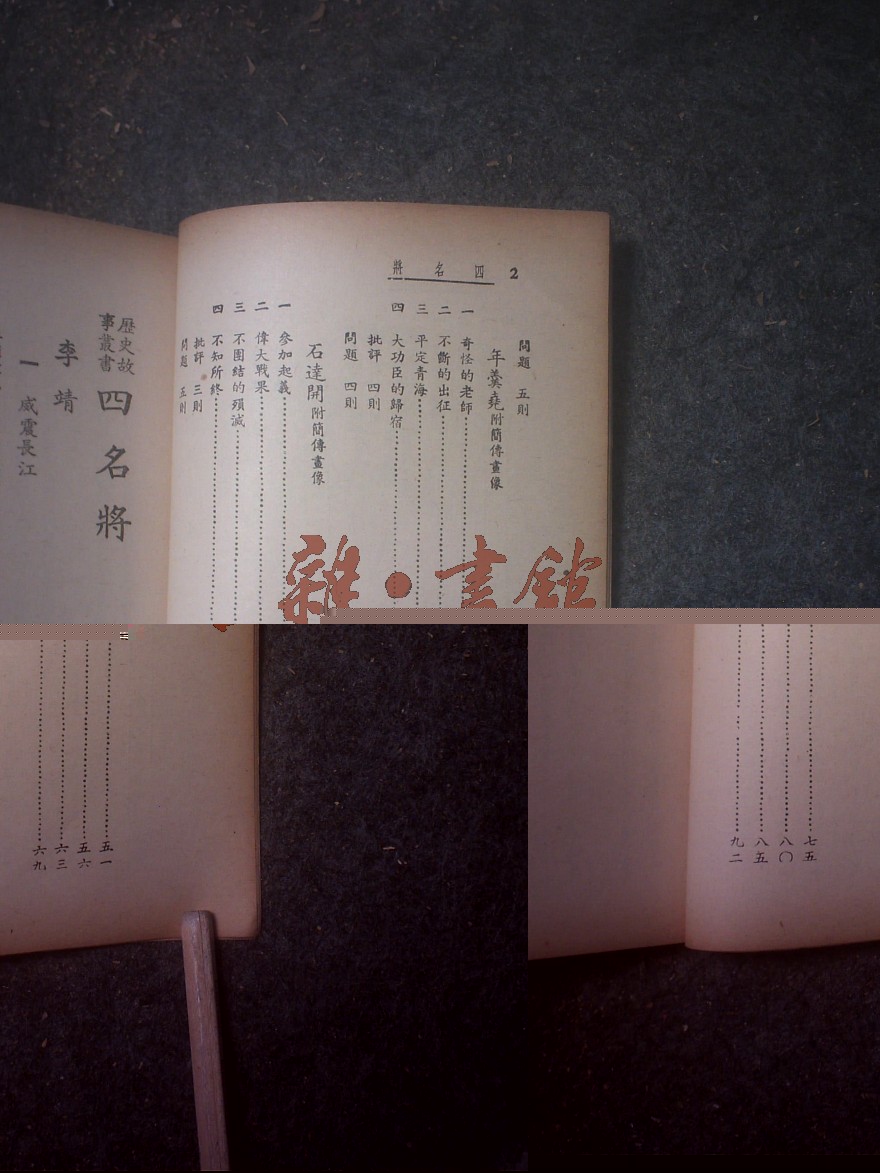 2 四名將
問題 五則
年羹堯附簡傳畫像
一 奇怪的老師
二 不斷的出征
三 平定青海
四 大功臣的歸宿
批評 四則
問題 四則
石達開附簡傳畫像
一 參加起義
二 偉大戰果
三 不團結的殞滅
四 不知所終
批評 三則
問題 五則
歷史故事叢書 四名將
李靖
一 威震長江
雜•書館
五一
五六
六三
六九
七五
八〇
八五
九二